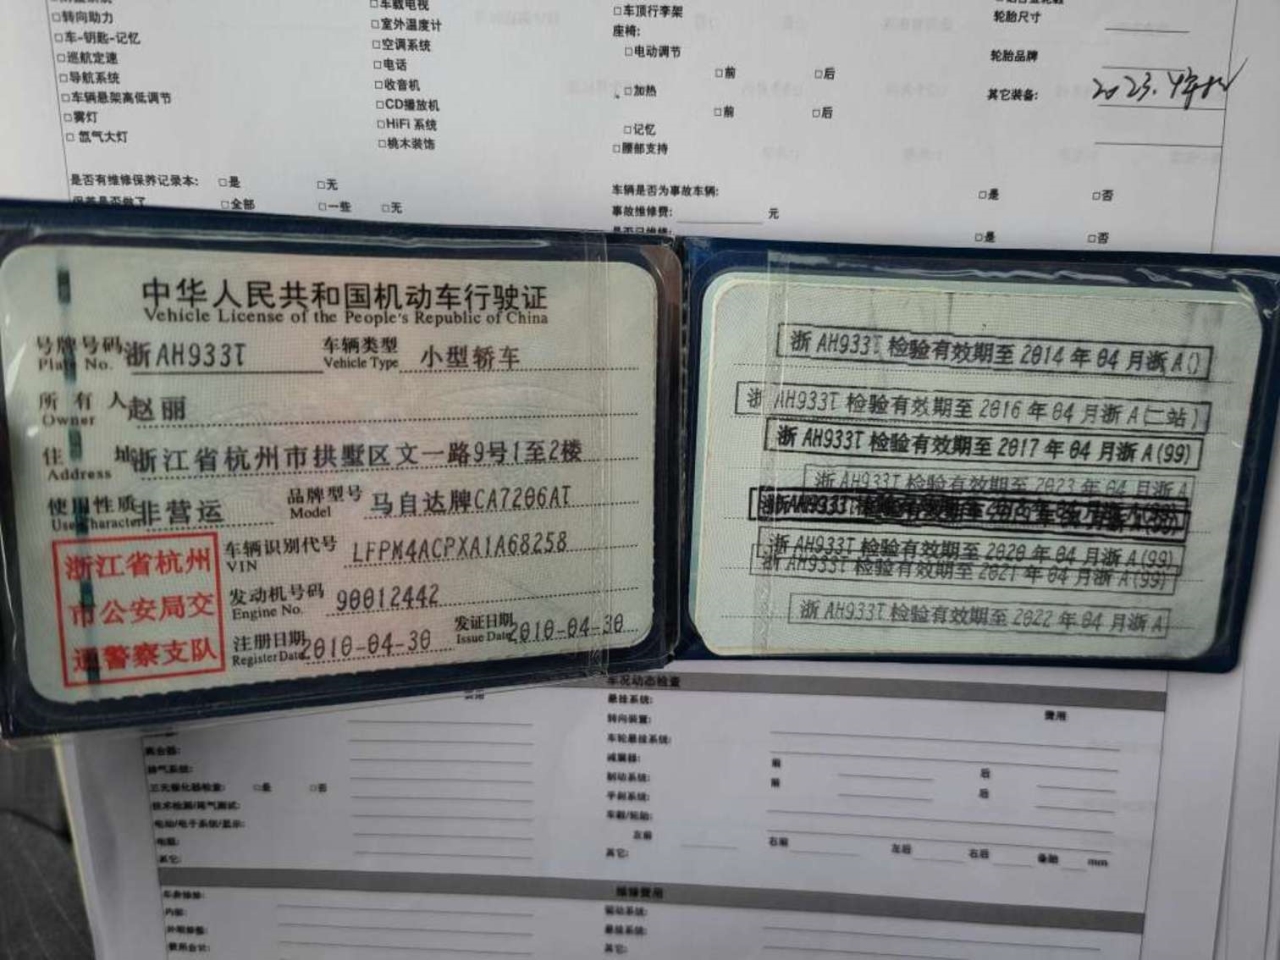 □转向助力
□车-钥匙-记忆
□巡航定速
□导航系统
□车辆悬架高低调节
□雾灯
□ 氙气大灯
□车载电视
□室外温度计
□空调系统
□电话
□收音机
□CD播放机
□HiFi 系统
□桃木装饰
□车顶行李架
座椅:
□电动调节
□前 □后
□加热
□前 □后
□记忆
□腰部支持
轮胎尺寸
轮胎品牌
其它装备:
是否有维修保养记录本: □是 □无
□全部 □一些 □无
车辆是否为事故车辆: □是 □否
事故维修费: 元
□是 □否
中华人民共和国机动车行驶证
Vehicle License of the People's Republic of China
号牌号码 浙AH933T 车辆类型 小型轿车
Plate No. Vehicle Type
所有人 赵丽
Owner
住址 浙江省杭州市拱墅区文一路9号1至2楼
Address
使用性质 非营运 品牌型号 马自达牌CA7206AT
Use Character Model
车辆识别代号 LFPM4ACPXA1A68258
VIN
发动机号码 90012442
Engine No.
注册日期 2010-04-30 发证日期 2010-04-30
Register Date Issue Date
浙江省杭州
市公安局交
通警察支队
浙AH933T检验有效期至2014年04月浙A()
浙AH933T检验有效期至2016年04月浙A(二站)
浙AH933T检验有效期至2017年04月浙A(99)
浙AH933T检验有效期至2023年04月浙A
浙AH933T检验有效期至2020年04月浙A(99)
浙AH933T检验有效期至2021年04月浙A(99)
浙AH933T检验有效期至2022年04月浙A
车况动态检查
费用
悬挂系统:
转向装置:
车轮悬挂系统:
减震器: 前 后
制动系统: 前 后
手刹系统:
车毂/轮胎:
左前 右前 左后 右后 备胎 mm
其它:
离合器:
排气系统:
三元催化器检查: □是 □否
技术检测/尾气测试:
电动/电子系统/显示:
电瓶:
其它:
维修费用
内部:
其它: